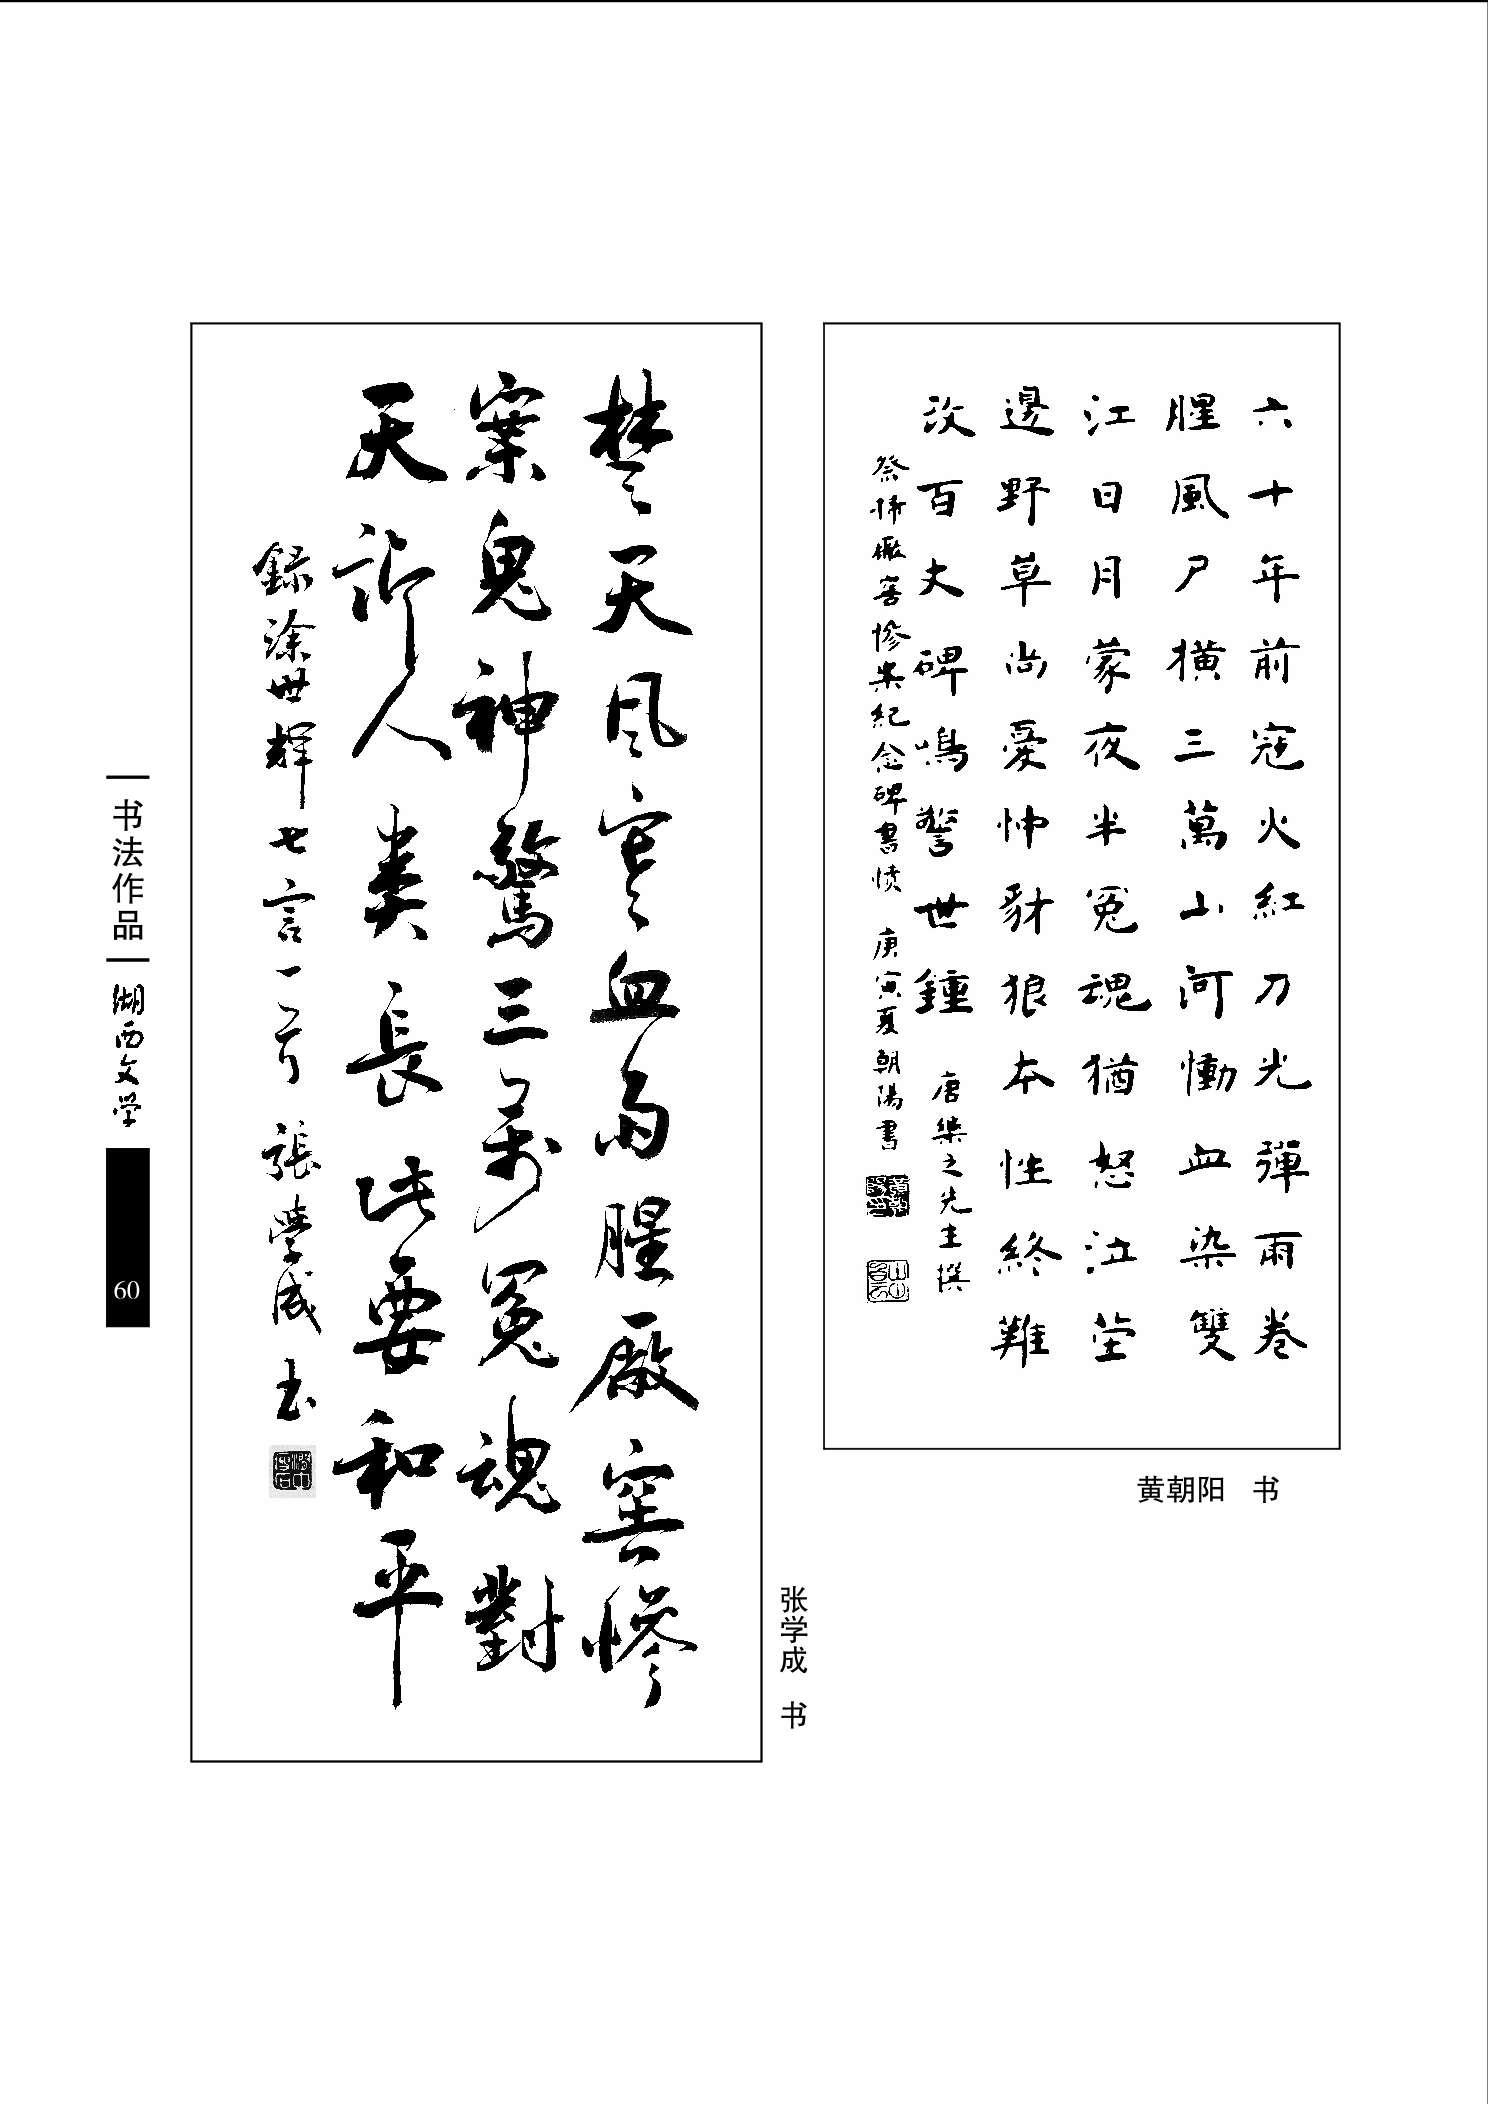 六十年前寇火紅刀光彈雨卷
腥風尸橫三萬山河慟血染雙
江日月蒙夜半冤魂猶怒泣茔
邊野草尚憂忡豺狼本性終難
改百丈碑鳴警世鍾
唐樂之先生撰
祭拜廠窖慘案紀念碑書愤 庚寅夏朝陽書
黄朝阳 书
楚天风寒血雨腥廠窖慘
案鬼神驚三万冤魂對
天訴人类長此要和平
錄涂世輝七言一首 張學成書
张学成 书
书法作品
湖西文学
60